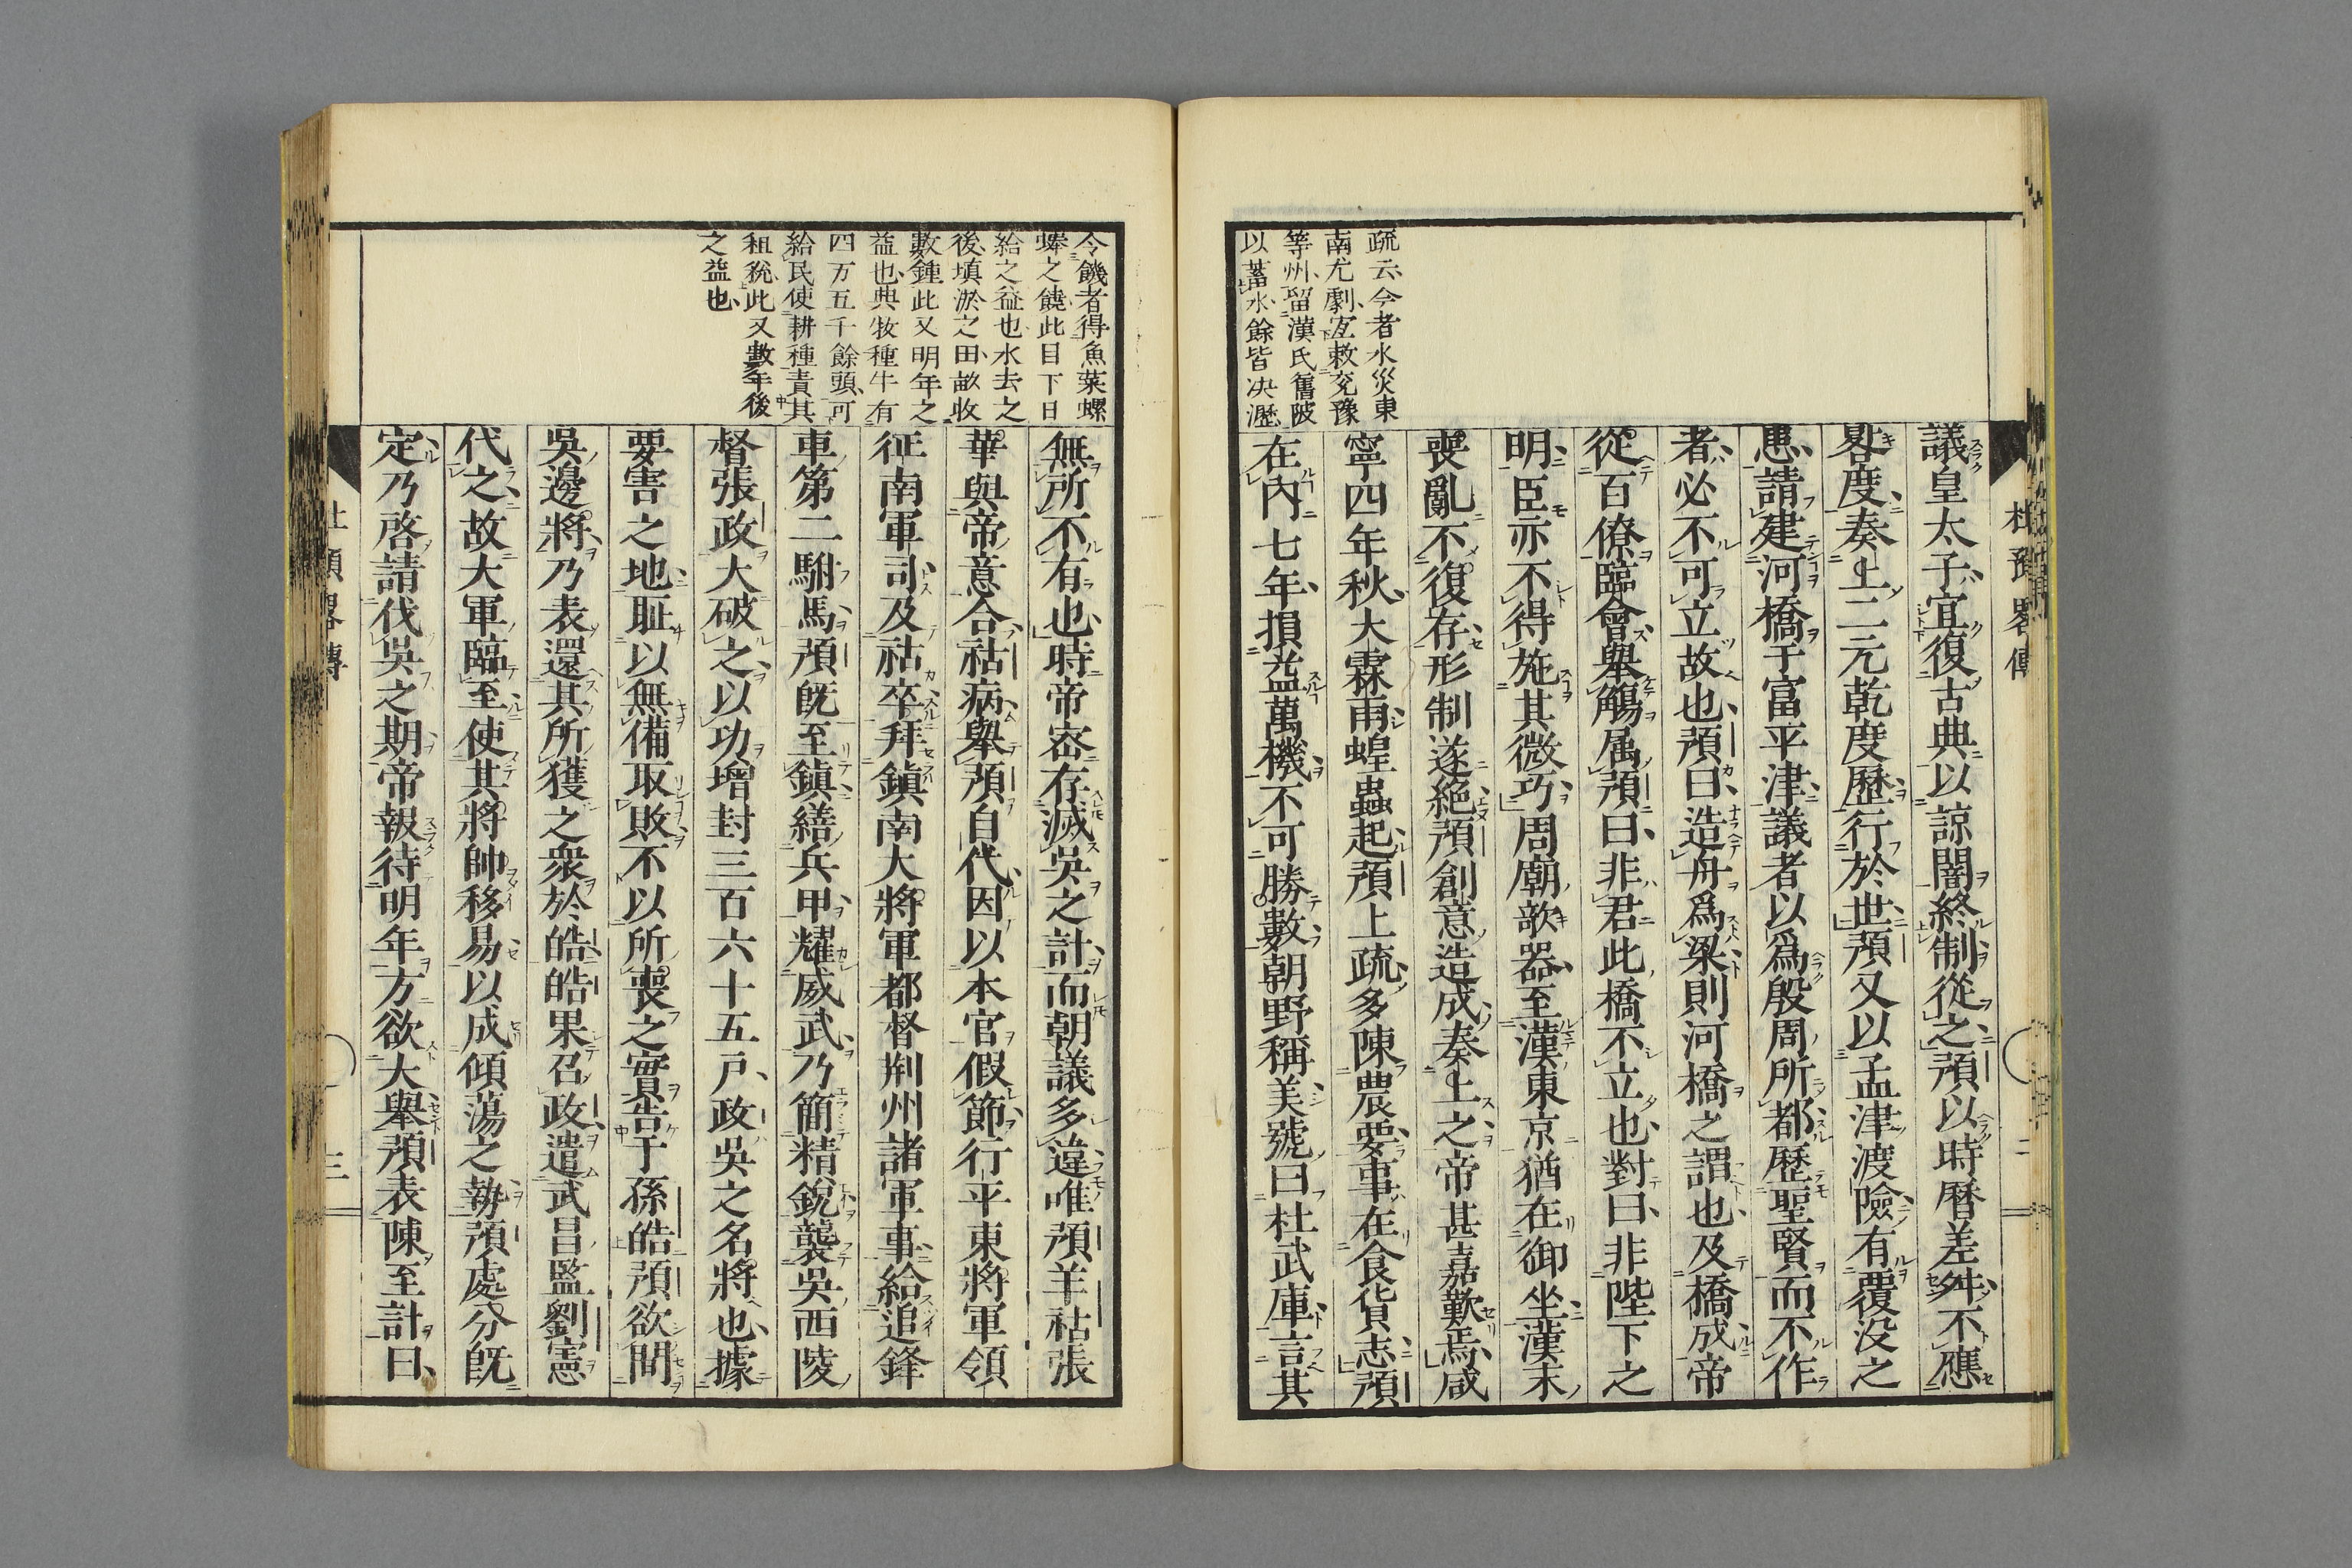 疏云今者水災東
南尤劇宜敕兗豫
等州留漢氏舊陂
以蓄水餘皆决瀝
議皇太子宜復古典以諒闇終制從之預以時曆差舛不應
晷度奏上二元乾度歷行於世預又以孟津渡險有覆没之
患請建河橋于富平津議者以爲殷周所都歷聖賢而不作
者必不可立故也預曰造舟爲梁則河橋之謂也及橋成帝
從百僚臨會舉觴属預曰非君此橋不立也對曰非陛下之
明臣亦不得施其微巧周廟欹器至漢東京猶在御坐漢末
喪亂不復存形制遂絶預創意造成奏上之帝甚嘉歎焉咸
寧四年秋大霖雨蝗蟲起預上疏多陳農要事在食貨志預
在內七年損益萬機不可勝數朝野稱美號曰杜武庫言其
令饑者得魚菜螺
蜯之饒此目下日
給之益也水去之
後填淤之田畝收
數鍾此又明年之
益也典牧種牛有
四万五千餘頭可
給民使耕種責其
租稅此又數年後
之益也
無所不有也時帝密存滅吳之計而朝議多違唯預羊祜張
華與帝意合祜病舉預自代因以本官假節行平東將軍領
征南軍司及祜卒拜鎮南大將軍都督荆州諸軍事給追鋒
車第二駙馬預既至鎮繕兵甲耀威武乃簡精銳襲吳西陵
督張政大破之以功增封三百六十五戶政吳之名將也據
要害之地耻以無備取敗不以所喪之實告于孫皓預欲間
吳邊將乃表還其所獲之衆於皓皓果召政遣武昌監劉憲
代之故大軍臨至使其將帥移易以成傾蕩之勢預處分既
定乃啓請伐吳之期帝報待明年方欲大舉預表陳至計曰
三